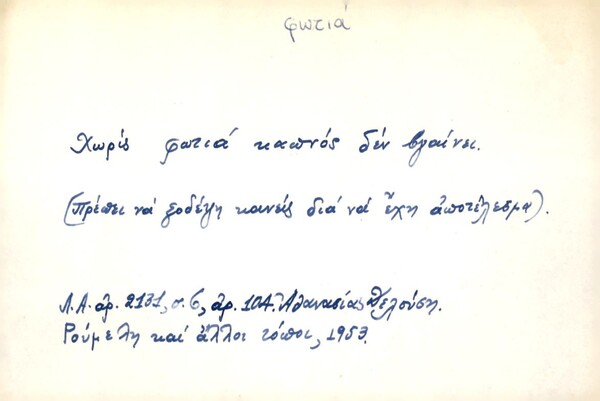 φωτιά
Χωρίς φωτιά καπνός δέν βγαίνει.
(Πρέπει νά ξοδέψη κανείς διά νά ἔχη ἀποτέλεσμα).
Λ.Α. ἀρ. 2131, σ. 6, ἀρ. 104. Ἀθανασίας
Ρούμελη καί ἄλλοι τόποι, 1953.